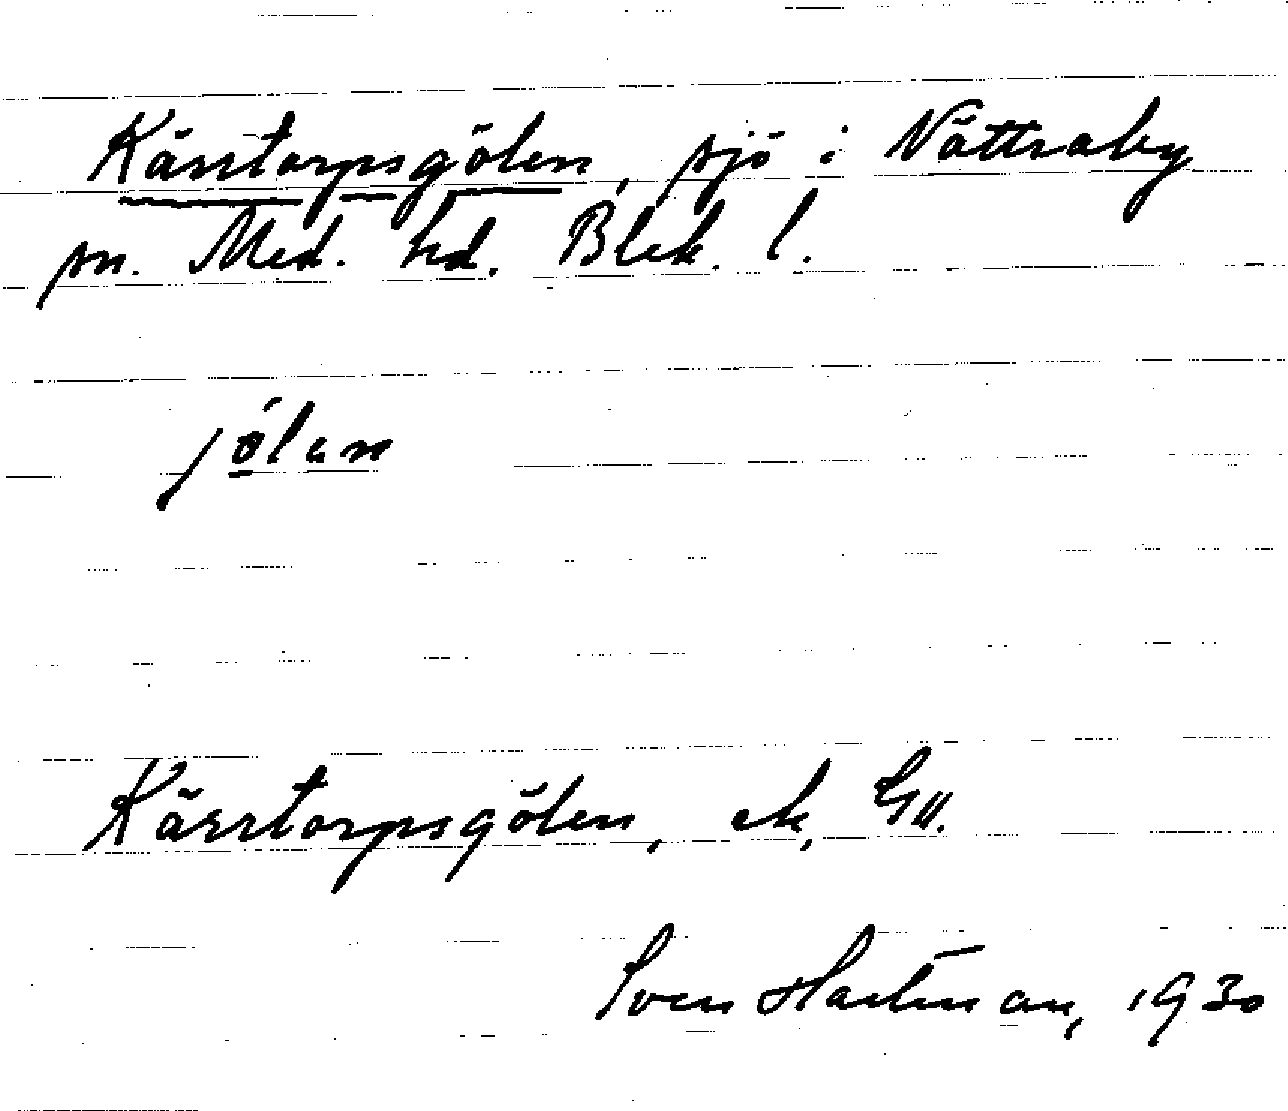 Kärrtorpsgölen, sjö i Nättraby
sn. Med. hd. Blek. l.
jölan
Kärrtorpsgölen, ek,
Sven Hartman, 1930